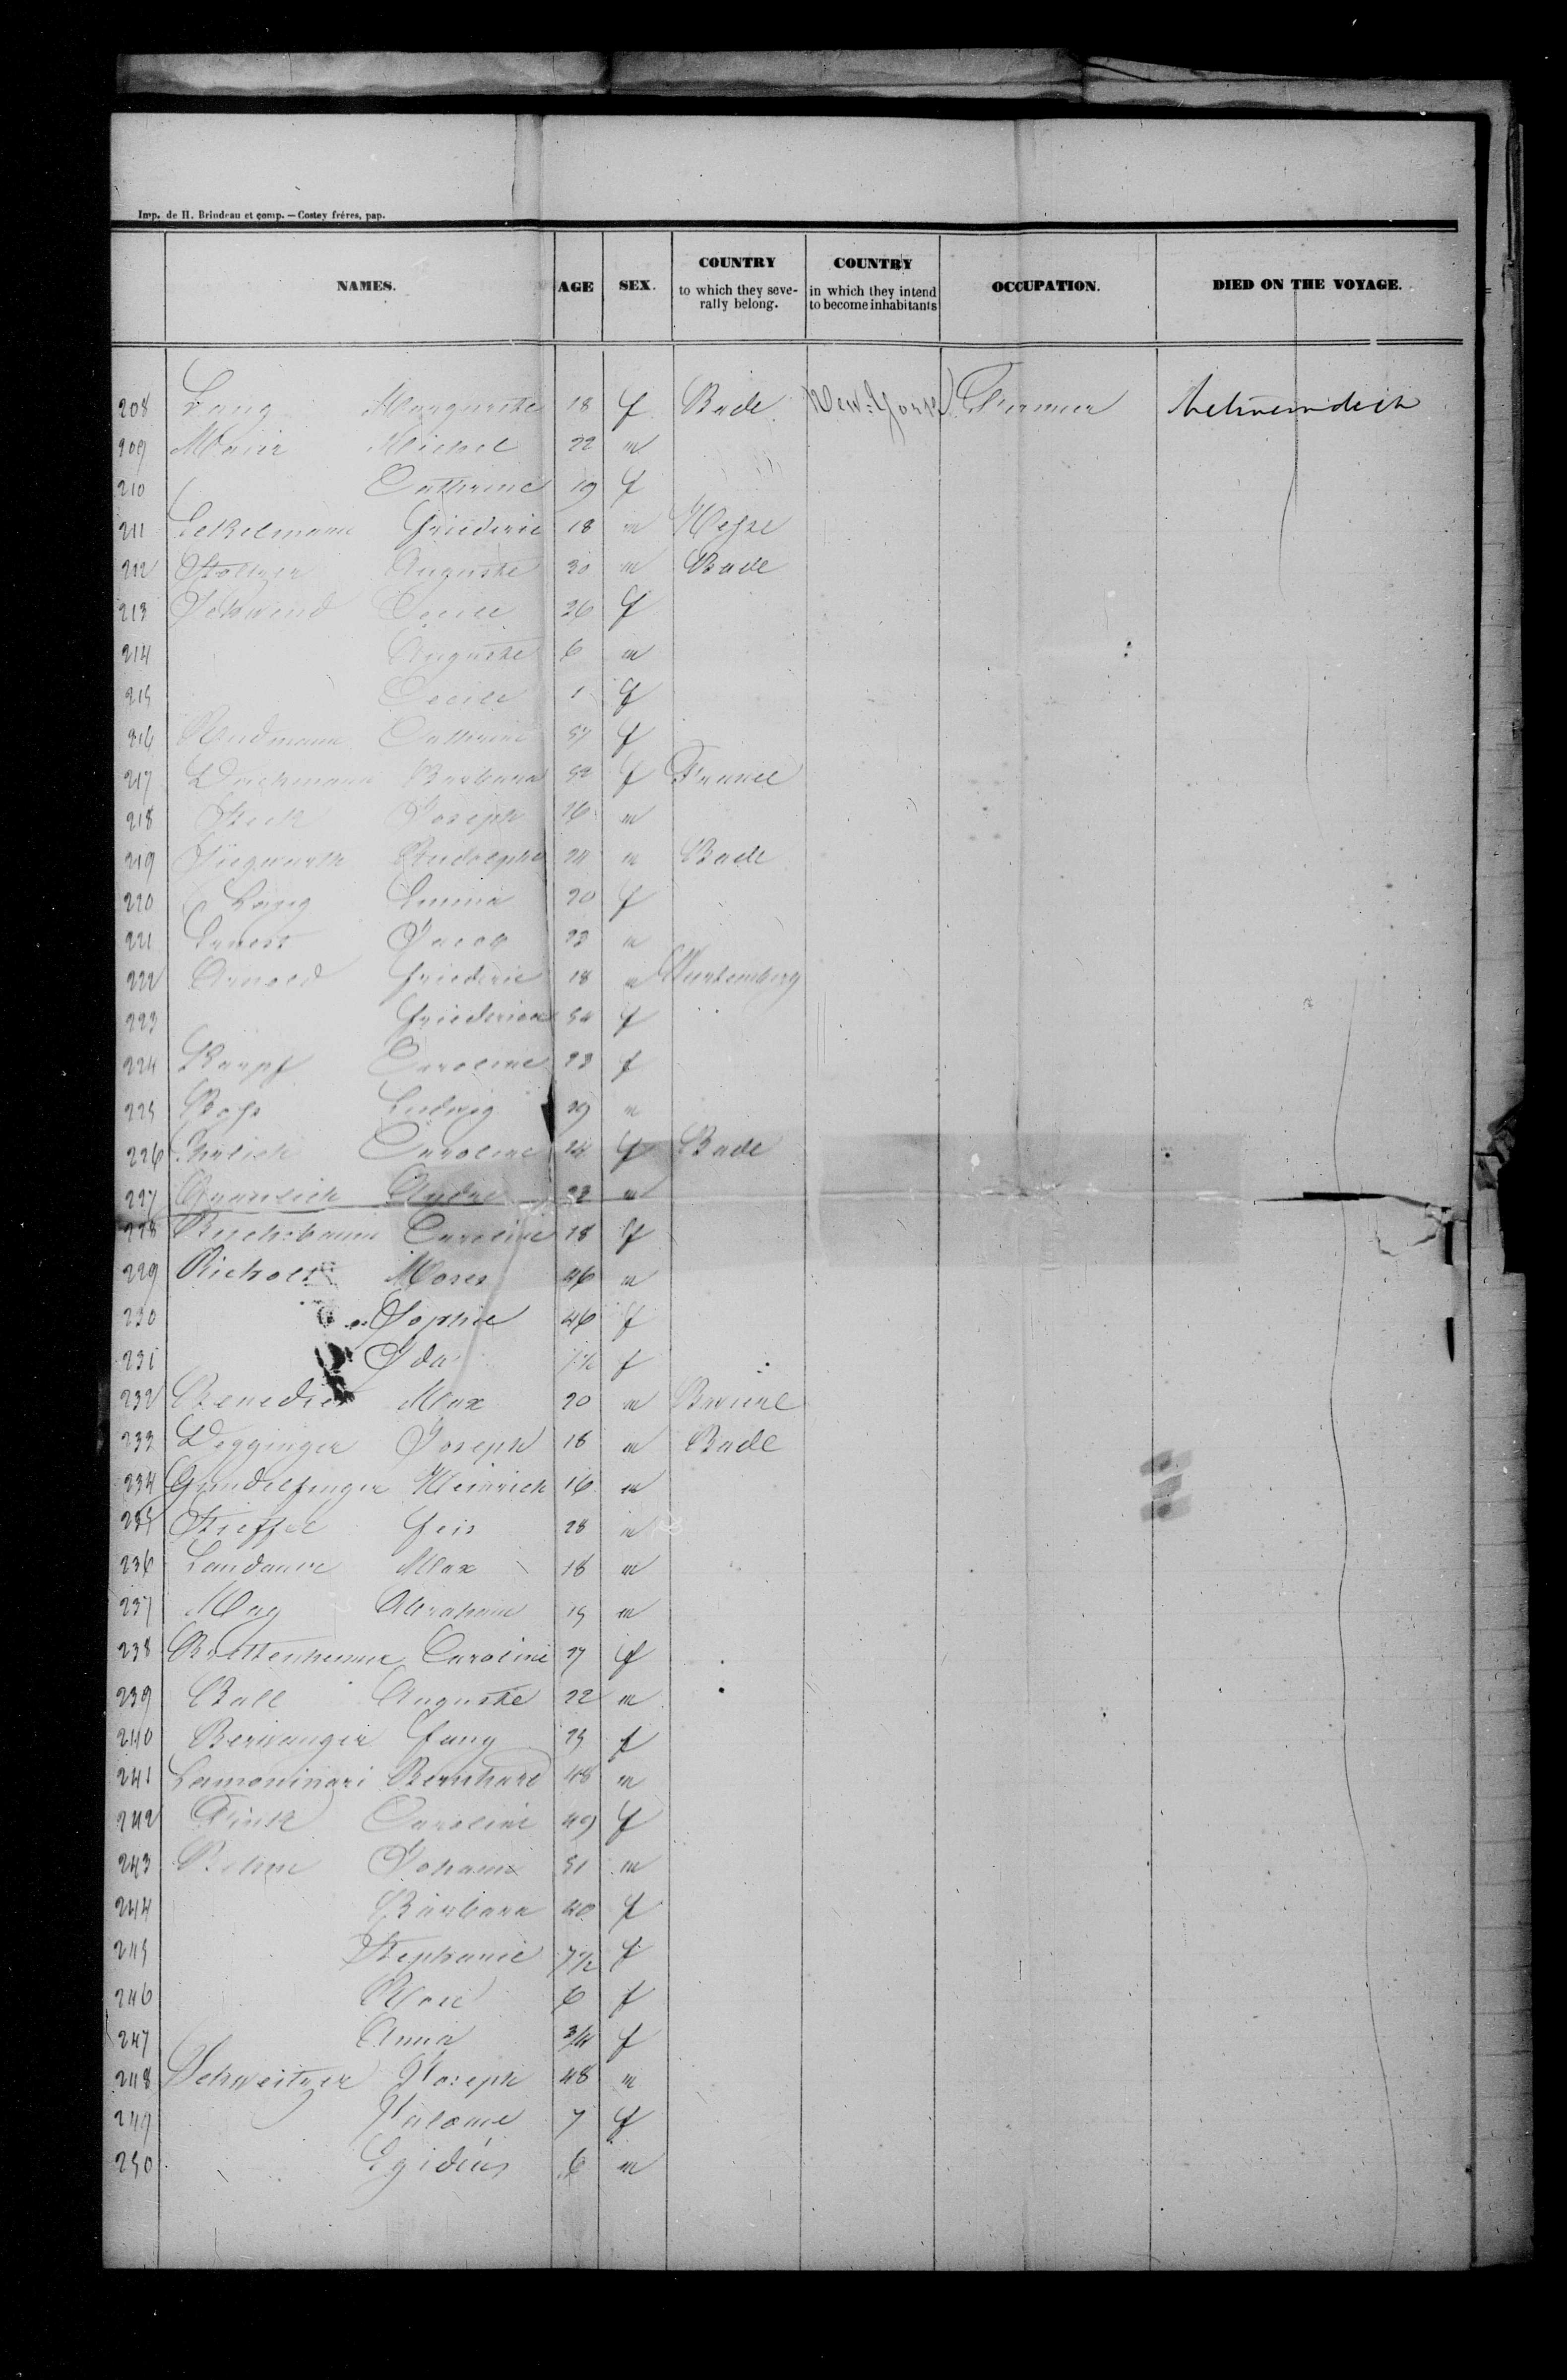 Imp. de H. Brindeau et comp. — Costey fréres, pap.
NAMES. AGE SEX. COUNTRY to which they seve- rally belong. COUNTRY in which they intend to become inhabitants OCCUPATION. DIED ON THE VOYAGE.
208 Lang Marguerithe 18 f Bade New-York Farmer between deck
209 Maier Michel 22 m
210 Catherine 19 f
211 Eckelmann Friederic 18 m Hesse
212 Auguste 30 m Bade
213 Schwend Cecile 26 f
214 Auguste 6 m
215 Cecile 1 f
216 Catherine 57 f
217 Barbara 52 f France
218 Joseph 26 m
219 Rudolephe 24 m Bade
220 Lang Emma 20 f
221 Ernest Jacob 23 m
222 Arnold Friederic 18 m Wurtemberg
223 Friedericá 54 f
224 Karpf Caroline 23 f
225 Ludwig 29 m
226 Caroline 24 f Bade
227 Andre 22 m
228 Caroline 18 f
229 Moses 46 m
230 Sophie 46 f
231 Ida f
232 Benedict Max 20 m Baviere
233 Degginger Joseph 18 m Bade
234 Gundelfinger Heinrich 16 m
235 Stieffel Feis 28 m
236 Landauer Max 18 m
237 May Abraham 15 m
238 Caroline 27 f
239 Ball Auguste 22 m
240 Berwanger Fany 25 f
241 Lamoninari Bernhard 48 m
242 Fink Caroline 49 f
243 Johann 51 m
244 Barbara 40 f
245 Stephanie 7 1/2 f
246 6 f
247 Anna 3/4 f
248 Schweitzer Joseph 48 m
249 Salome 7 f
250 Egidius 6 m